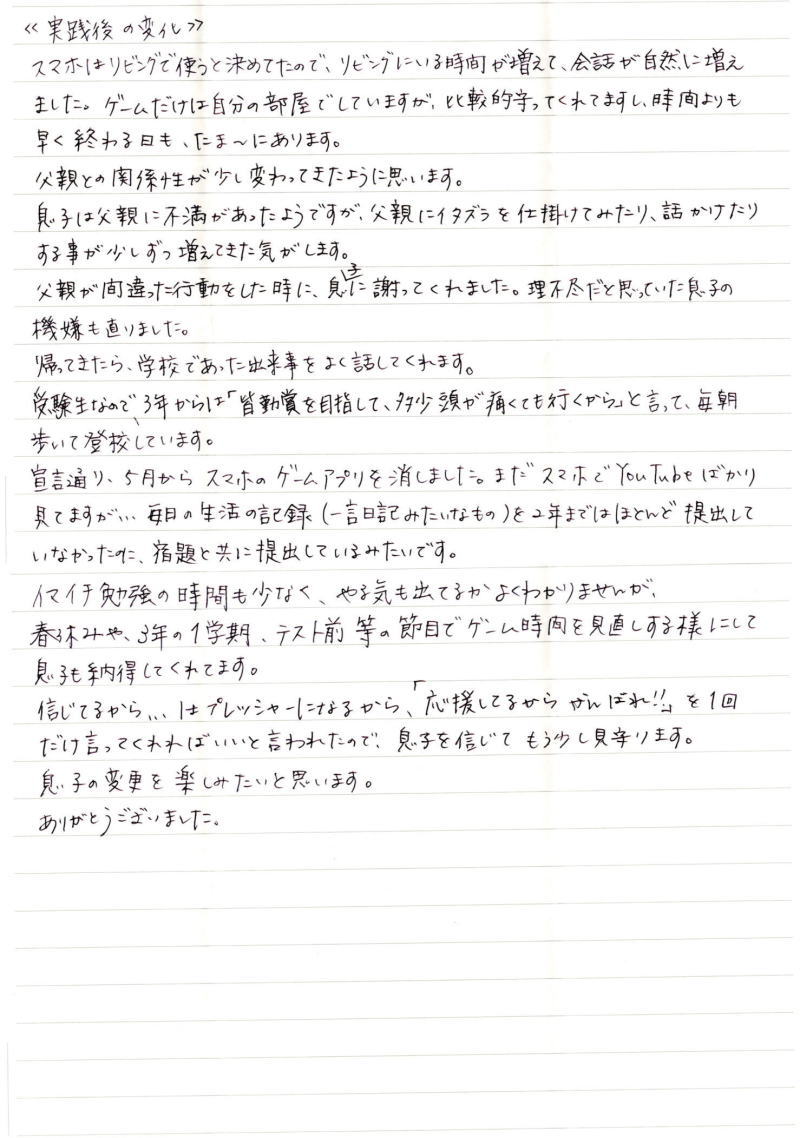 ≪実践後の変化≫
スマホはリビングで使うと決めてたので、リビングにいる時間が増えて、会話が自然に増え
ました。ゲームだけは自分の部屋でしていますが、比較的守ってくれてますし、時間よりも
早く終わる日も、たま〜にあります。
父親との関係性が少し変わってきたように思います。
息子は父親に不満があったようですが、父親にイタズラを仕掛けてみたり、話かけたり
する事が少しずつ増えてきた気がします。
父親が間違った行動をした時に、息子に謝ってくれました。理不尽だと思っていた息子の
機嫌も直りました。
帰ってきたら、学校であった出来事をよく話してくれます。
受験生なので3年からは「皆勤賞を目指して、多少頭が痛くても行くから」と言って、毎朝
歩いて登校しています。
宣言通り、5月からスマホのゲームアプリを消しました。まだスマホでYouTubeばかり
見てますが… 毎日の生活の記録(一言日記みたいなもの)を2年まではほとんど提出して
いなかったのに、宿題と共に提出しているみたいです。
イマイチ勉強の時間も少なく、やる気も出てるかよくわかりませんが、
春休みや、3年の1学期、テスト前等の節目でゲーム時間を見直しする様にして
息子も納得してくれてます。
信じてるから… はプレッシャーになるから、「応援してるからがんばれ!!」を1回
だけ言ってくれればいいと言われたので、息子を信じてもう少し見守ります。
息子の変更を楽しみたいと思います。
ありがとうございました。